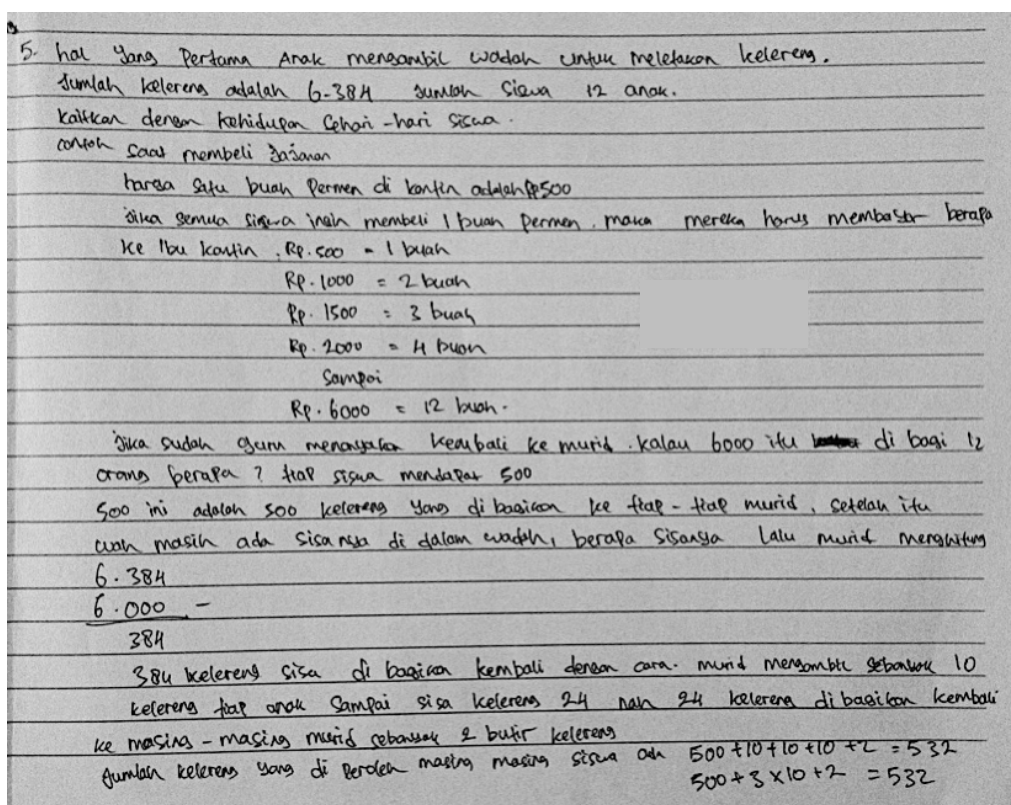 5. hal yang Pertama Anak mengambil wadah untuk meletakan kelereng.
Jumlah kelereng adalah 6.384 Jumlah Siswa 12 anak.
kaitkan dengan kehidupan Sehari-hari siswa.
contoh saat membeli Jajanan
harga satu buah Permen di kantin adalah Rp500
Jika semua siswa ingin membeli 1 buah permen. maka mereka harus membayar berapa
ke Ibu kantin. Rp. 500 = 1 buah
Rp. 1000 = 2 buah
Rp. 1500 = 3 buah
Rp. 2000 = 4 buah
Sampai
Rp. 6000 = 12 buah.
Jika sudah guru menanyakan kembali ke murid. kalau 6000 itu di bagi 12
orang berapa? tiap siswa mendapat 500
500 ini adalah 500 kelereng yang di bagikan ke tiap-tiap murid, setelah itu
wah masih ada sisanya di dalam wadah, berapa sisanya Lalu murid menghitung
6.384
6.000 -
384
384 kelereng sisa di bagikan kembali dengan cara. murid mengambil sebanyak 10
kelereng tiap anak sampai sisa kelereng 24 nah 24 kelereng di bagikan kembali
ke masing-masing murid sebanyak 2 butir kelereng
Jumlah kelereng yang di peroleh masing masing siswa adh 500+10+10+10+2 = 532
500+3×10+2 = 532